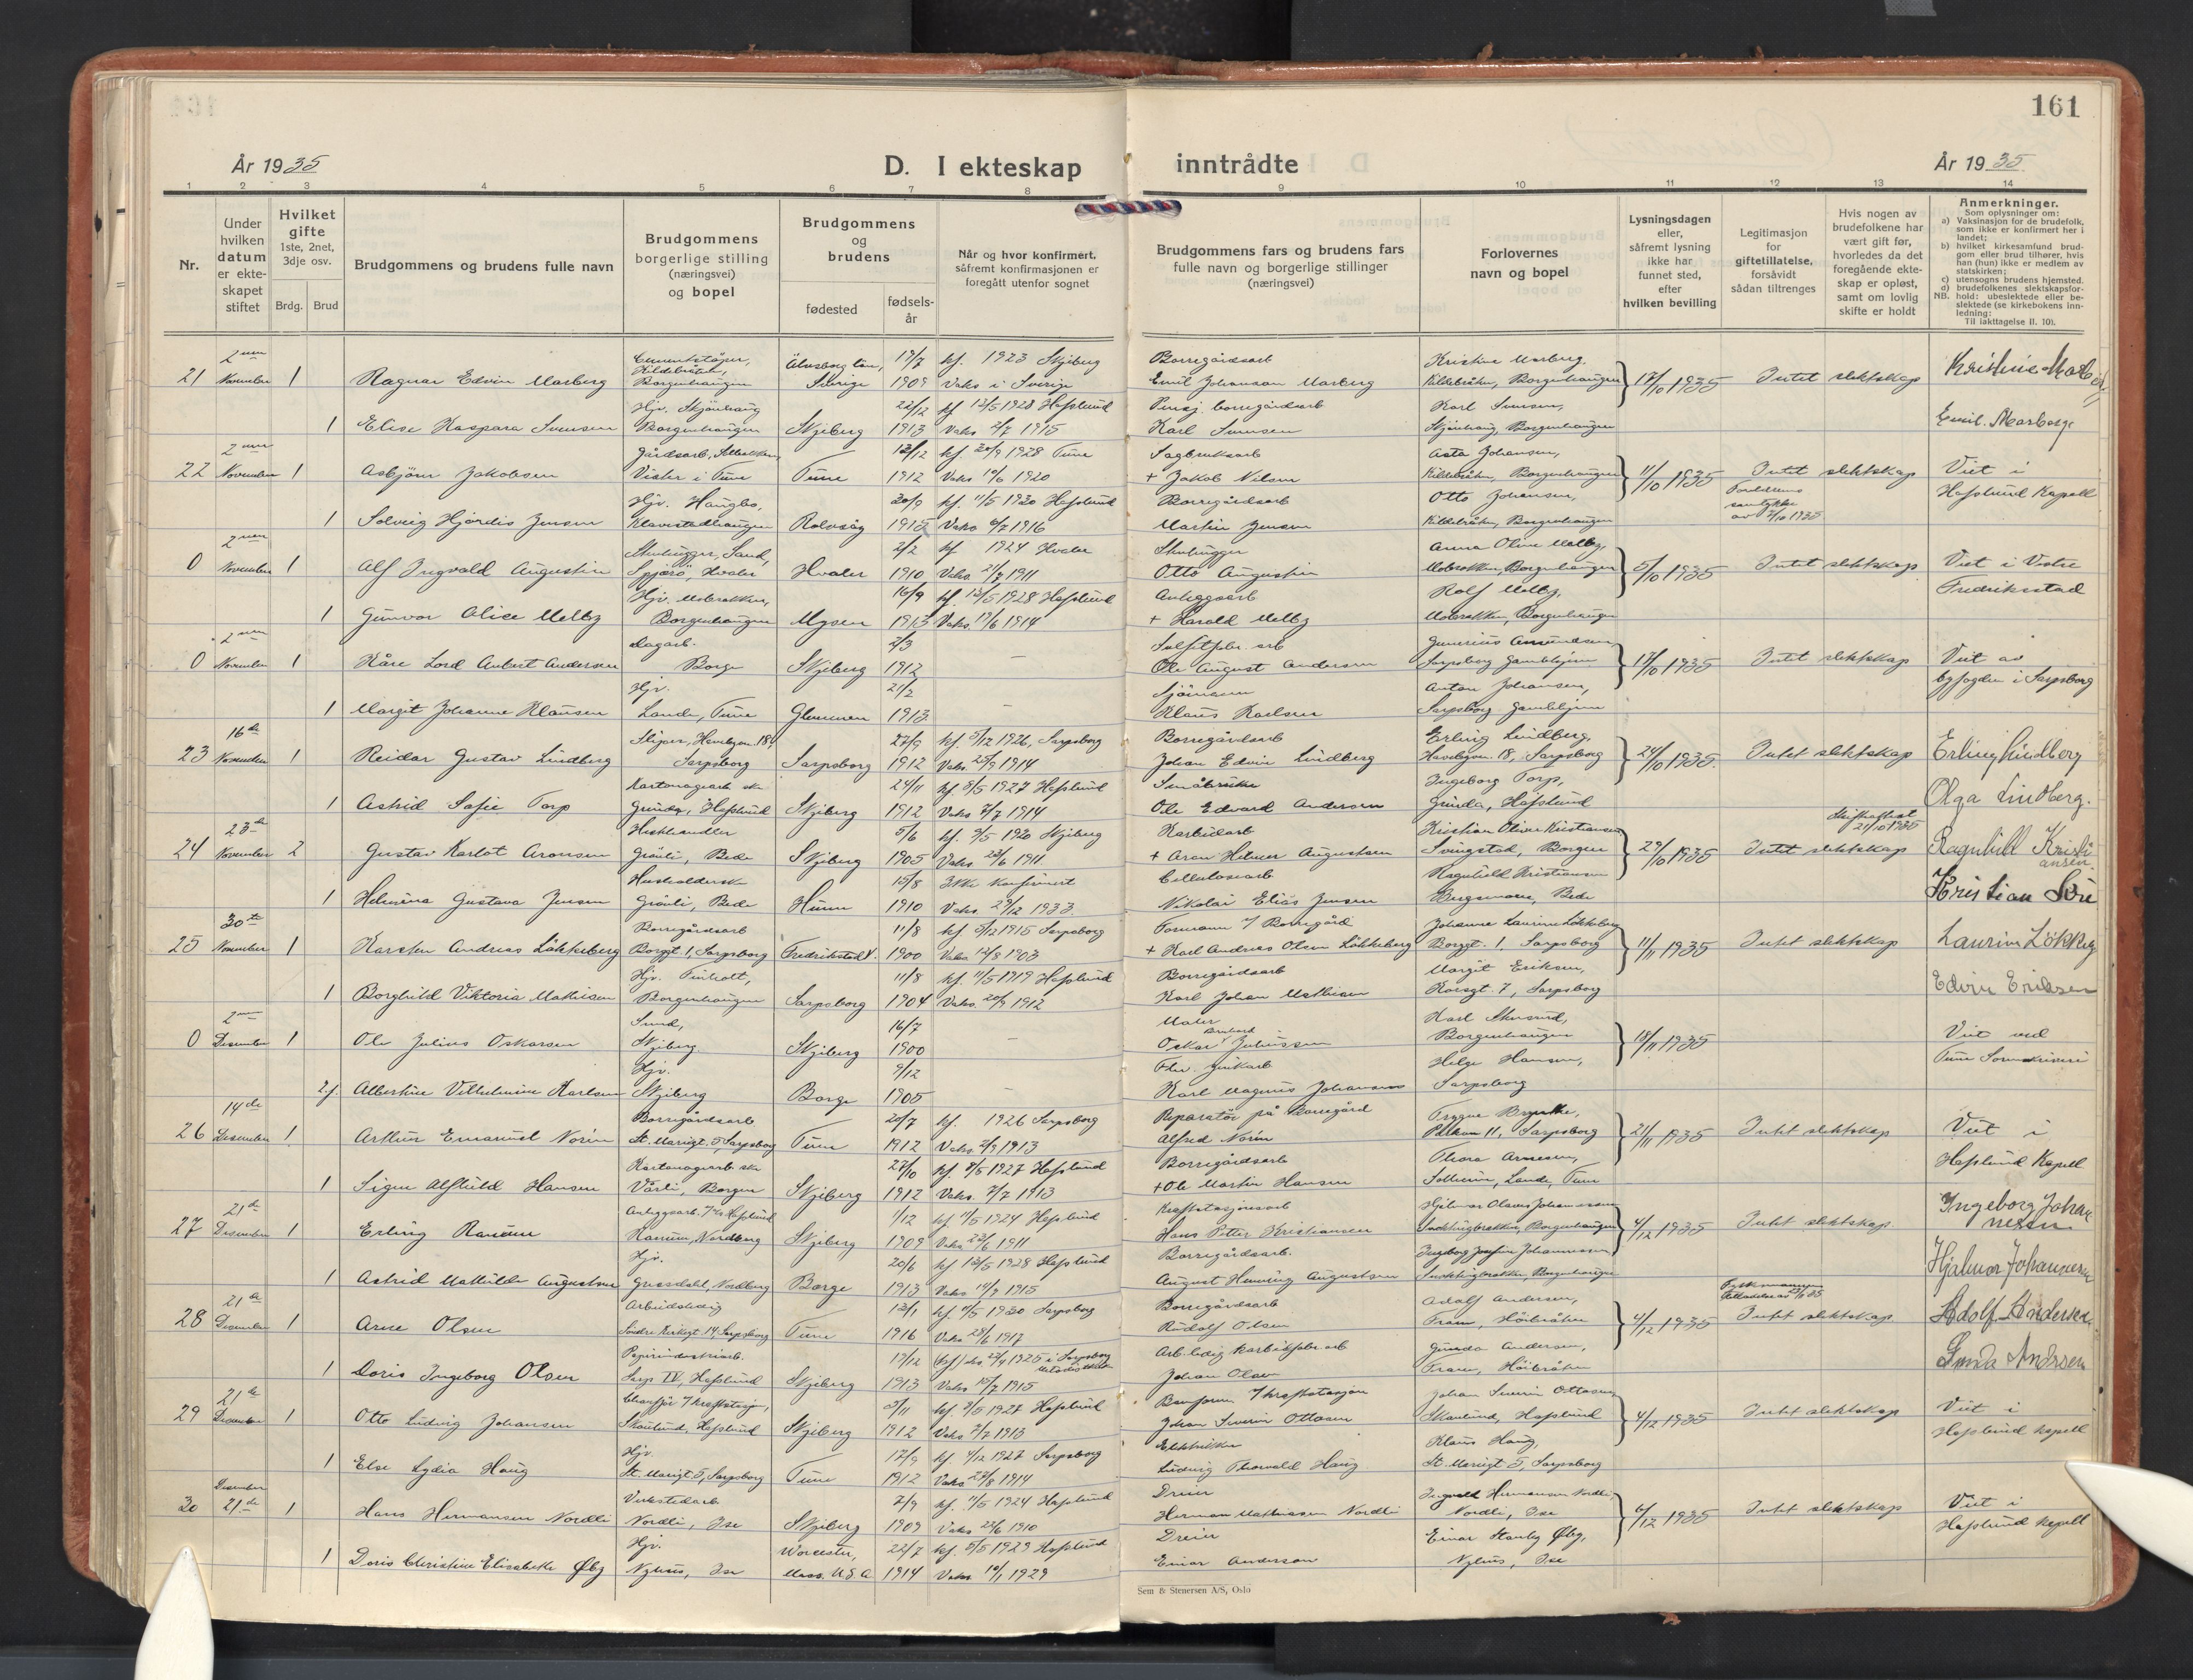 161
År 1935
D. I ekteskap inntrådte
År 1935
1 2 3 4 5 6 7 8 9 10 11 12 13 14
Nr.
Under hvilken datum er ekteskapet stiftet
Hvilket gifte 1ste, 2net, 3dje osv.
Brdg. Brud
Brudgommens og brudens fulle navn
Brudgommens borgerlige stilling (næringsvei) og bopel
Brudgommens og brudens
fødested
fødselsår
Når og hvor konfirmert, såfremt konfirmasjonen er foregått utenfor sognet
Brudgommens fars og brudens fars fulle navn og borgerlige stillinger (næringsvei)
Forlovernes navn og bopel
Lysningsdagen eller, såfremt lysning ikke har funnet sted, efter hvilken bevilling
Legitimasjon for giftetillatelse, forsåvidt sådan tiltrenges
Hvis nogen av brudefolkene har vært gift før, hvorledes da det foregående ekteskap er opløst, samt om lovlig skifte er holdt
Anmerkninger.
Som oplysninger om:
a) Vaksinasjon for de brudefolk, som ikke er konfirmert her i landet;
b) hvilket kirkesamfund brudgom eller brud tilhører, hvis han (hun) ikke er medlem av statskirken;
c) utensogns brudens hjemsted.
d) brudefolkenes slektskapsforhold: ubeslektede eller beslektede (se kirkebokens innledning:
NB. Til iakttagelse II. 10).
21 November 1 Ragnar Edvin Marberg Borgenhaugen Sverige 19/7 1909 kf. 1923 Skjeberg Vaks i Sverige
Borregårdsarb Emil Johansson Marberg Kristine Marberg, Kildebråten, Borgenhaugen 17/10 1935 Intet slektskap Kristine Marberg
1 Elise Kaspara Svensen Borgenhaugen Skjeberg 22/12 1913 kf 13/5 1928 Hafslund Vaks 2/7 1915
Karl Svensen Karl Svensen, Borgenhaugen Emil. Marberg
22 November 1 Asbjørn Jakobsen Vister i Tune Tune 12/12 1912 kf. 30/9 1928 Tune Vaks 10/6 1920
Sagbruksarb + Jakob Nilsen Asta Johansen, Kildebråten, Borgenhaugen 11/10 1935 Intet slektskap Viet i Hafslund Kapell
1 Solveig Hjørdis Jensen Hjv. Haugbo, Klavestadhaugen Rolvsøy 20/9 1915 kf. 11/5 1930 Hafslund Vaks 6/7 1916
Borregårdsarb Martin Jensen Otto Johansen, Kildebråten, Borgenhaugen
0 November 1 Alf Ingvald Augustin Stenhugger, Sand, Spjærø, Hvaler Hvaler 2/2 1910 kf 1924 Hvaler Vaks. 21/7 1911
Stenhugger Otto Augustin Anna Oline Melby, Borgenhaugen 5/10 1935 Intet slektskap Viet i Vestre Fredrikstad
1 Gunvor Alice Melby Borgenhaugen Mysen 16/9 1913 kf. 13/5 1928 Hafslund Vaks. 17/6 1914
Anleggsarb + Harald Melby Rolf Melby, Borgenhaugen
0 November 1 Kåre Lord Aubert Andersen Dagarb. Borge Skjeberg 2/3 1912 –
Ole August Andersen Gunerius Amundsen Sarpsborg Gamlehjem 17/10 1935 Intet slektskap Viet av byfogden i Sarpsborg
1 Margit Johanne Klausen Hjv. Lande, Tune Glemmen 21/2 1913 –
Sjømann Klaus Karlsen Anton Johansen, Sarpsborg Gamlehjem
23 16de November 1 Reidar Gustav Lindberg Sarpsborg Sarpsborg 27/9 1912 kf. 5/12 1926, Sarpsborg Vaks. 25/9 1914
Borregårdsarb Johan Edvin Lindberg Erling Lindberg, 18, Sarpsborg 24/10 1935 Intet slektskap Erling Lindberg
1 Astrid Sofie Torp Kartonagearb ske Grinda, Hafslund Skjeberg 24/11 1912 kf. 8/5 1927 Hafslund Vaks 7/7 1914
Småbruker Ole Edvard Andersen Ingeborg Torp, Grinda, Hafslund Olga Lindberg.
24 23de November 2 Gustav Karlot Aronsen Grøuli, Bede Skjeberg 5/6 1905 kf. 9/5 1920 Skjeberg Vaks. 23/6 1911
Karbidarb + Aron Helmer Augustsen Kristian Oliver Kristiansen Svingstad, Borgen 29/10 1935 Intet slektskap Skifteattest 21/10 1935 Ragnhild Kristiansen
1 Helmina Gustava Jensen Husholderske Grøuli, Bede Hunn 15/8 1910 Ikke konfirmert Vaks. 29/12 1933
Cellulosearb Nikolai Elias Jensen Ragnhild Kristiansen Bede Kristian
25 30te November 1 Karsten Andreas Løkkeberg Borregårdsarb Borggt. 1, Sarpsborg Fredrikstad V. 11/8 1900 kf. 5/12 1915 Sarpsborg Vaks 12/8 1903
Formann v/ Borregård + Karl Andreas Olsen Løkkeberg Johanne Laurine Løkkeberg Borggt. 1, Sarpsborg 11/11 1935 Intet slektskap Laurine Løkkeberg
1 Borghild Viktoria Mathisen Hjv. Furholt, Borgenhaugen Sarpsborg 11/8 1904 kf. 11/5 1919 Hafslund Vaks. 20/9 1912
Borregårdsarb Karl Johan Mathisen Margit Eriksen, Korsgt. 7, Sarpsborg Edvin Eriksen
0 Desember 1 Ole Julius Oskarsen Sund, Skjeberg Skjeberg 16/7 1900 –
Maler Oskar Julinssen Karl Borgenhaugen 18/11 1935 Viet ved Tune Sorenskriveri
2.f. Albertine Vilhelmine Karlsen Hjv. Skjeberg Borge 9/12 1905 –
Karl Magnus Johansen Helge Hansen, Sarpsborg
26 14de Desember 1 Arthur Emanuel Norum Borregårdsarb St. Mariegt. 5, Sarpsborg Tune 20/7 1912 kf. 1926 Sarpsborg Vaks. 2/9 1913
Reparatør på Borregård Alfred Norum Trygve 11, Sarpsborg 21/11 1935 Intet slektskap Viet i Hafslund Kapell
1 Signe Alfhild Hansen Kartonagearb ske Vårli, Borgen Skjeberg 27/10 1912 kf. 8/5 1927 Hafslund Vaks. 7/7 1913
Borregårdsarb + Ole Martin Hansen Thora Arnesen, Solheim, Lande, Tune
27 21de Desember 1 Erling Ranum Ranum, Nordberg Skjeberg 1/12 1909 kf. 11/5 1924 Hafslund Vaks 23/6 1911
Kraftstasjonsarb Hans Petter Kristiansen Hjalmar Olaves Johannessen Borgenhaugen 4/12 1935 Intet slektskap Ingeborg Johannesen
1 Astrid Mathilde Augustsen Hjv. Gressdahl, Nordberg Borge 20/6 1913 kf 13/5 1928 Hafslund Vaks 14/9 1915
Borregårdsarb. August Henning Augustsen Ingeborg Josefine Johannessen Borgenhaugen Hjalmar Johannesen
28 21de Desember 1 Arne Olsen Arbeidsledig Søndre Kirkegt. 14, Sarpsborg Tune 13/1 1916 kf. 11/5 1930 Sarpsborg Vaks 28/6 1917
Borregårdsarb Rudolf Olsen Adolf Andersen, Fram, Høibråten 4/12 1935 Intet slektskap Adolf Andersen
1 Doris Ingeborg Olsen Papirindustriarb. Sarp IV, Hafslund Skjeberg 19/12 1913 i Sarpsborg Vaks 10/7 1915
Johan Olsen Gunda Andersen, Fram, Høibråten Gunda Andersen
29 21de Desember 1 Otto Ludvig Johansen Skanlund, Hafslund Skjeberg 1912 kf. 8/5 1927 Hafslund Vaks 7/7 1913
Johan Severin Ottosen Johan Severin Ottosen, Skanlund, Hafslund 4/12 1935 Intet slektskap Viet i Hafslund Kapell
1 Else Lydia Haug Hjv. St. Mariegt. 5, Sarpsborg Tune 17/9 1912 kf 4/12 1927 Sarpsborg Vaks 27/8 1914
Elektriker Ludvig Thorvald Haug Klaus Haug, St. Mariegt 5, Sarpsborg
30 Desember 21de 1 Hans Hermansen Nordli Verkstedarb Nordli, Ise Skjeberg 7/9 1909 kf. 11/5 1924 Hafslund Vaks 22/6 1910
Dreier Herman Mathiasen Nordli Ingvald Hermansen Nordli Nordli, Ise 6/12 1935 Intet slektskap Viet i Hafslund Kapell
1 Doris Christine Elisabeth Øby Hjv. Nyhus, Ise Worcester, Mass. U.S.A. 22/7 1914 kf. 5/5 1929 Hafslund Vaks 10/1 1929
Dreier Einar Anderson Einar Stanley Øby, Nyhus, Ise
Sem & Stenersen A/S, Oslo